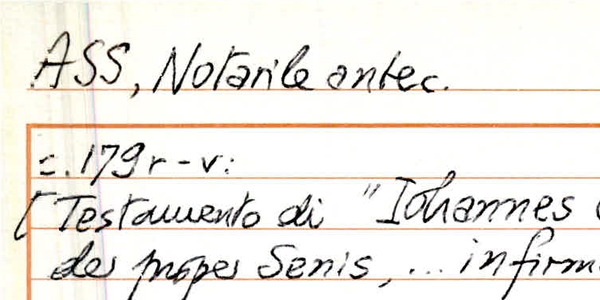 ASS, Notarile antec.
c. 179 r - v:
[Testamento di "Iohannes
de prope Senis, ... infirm